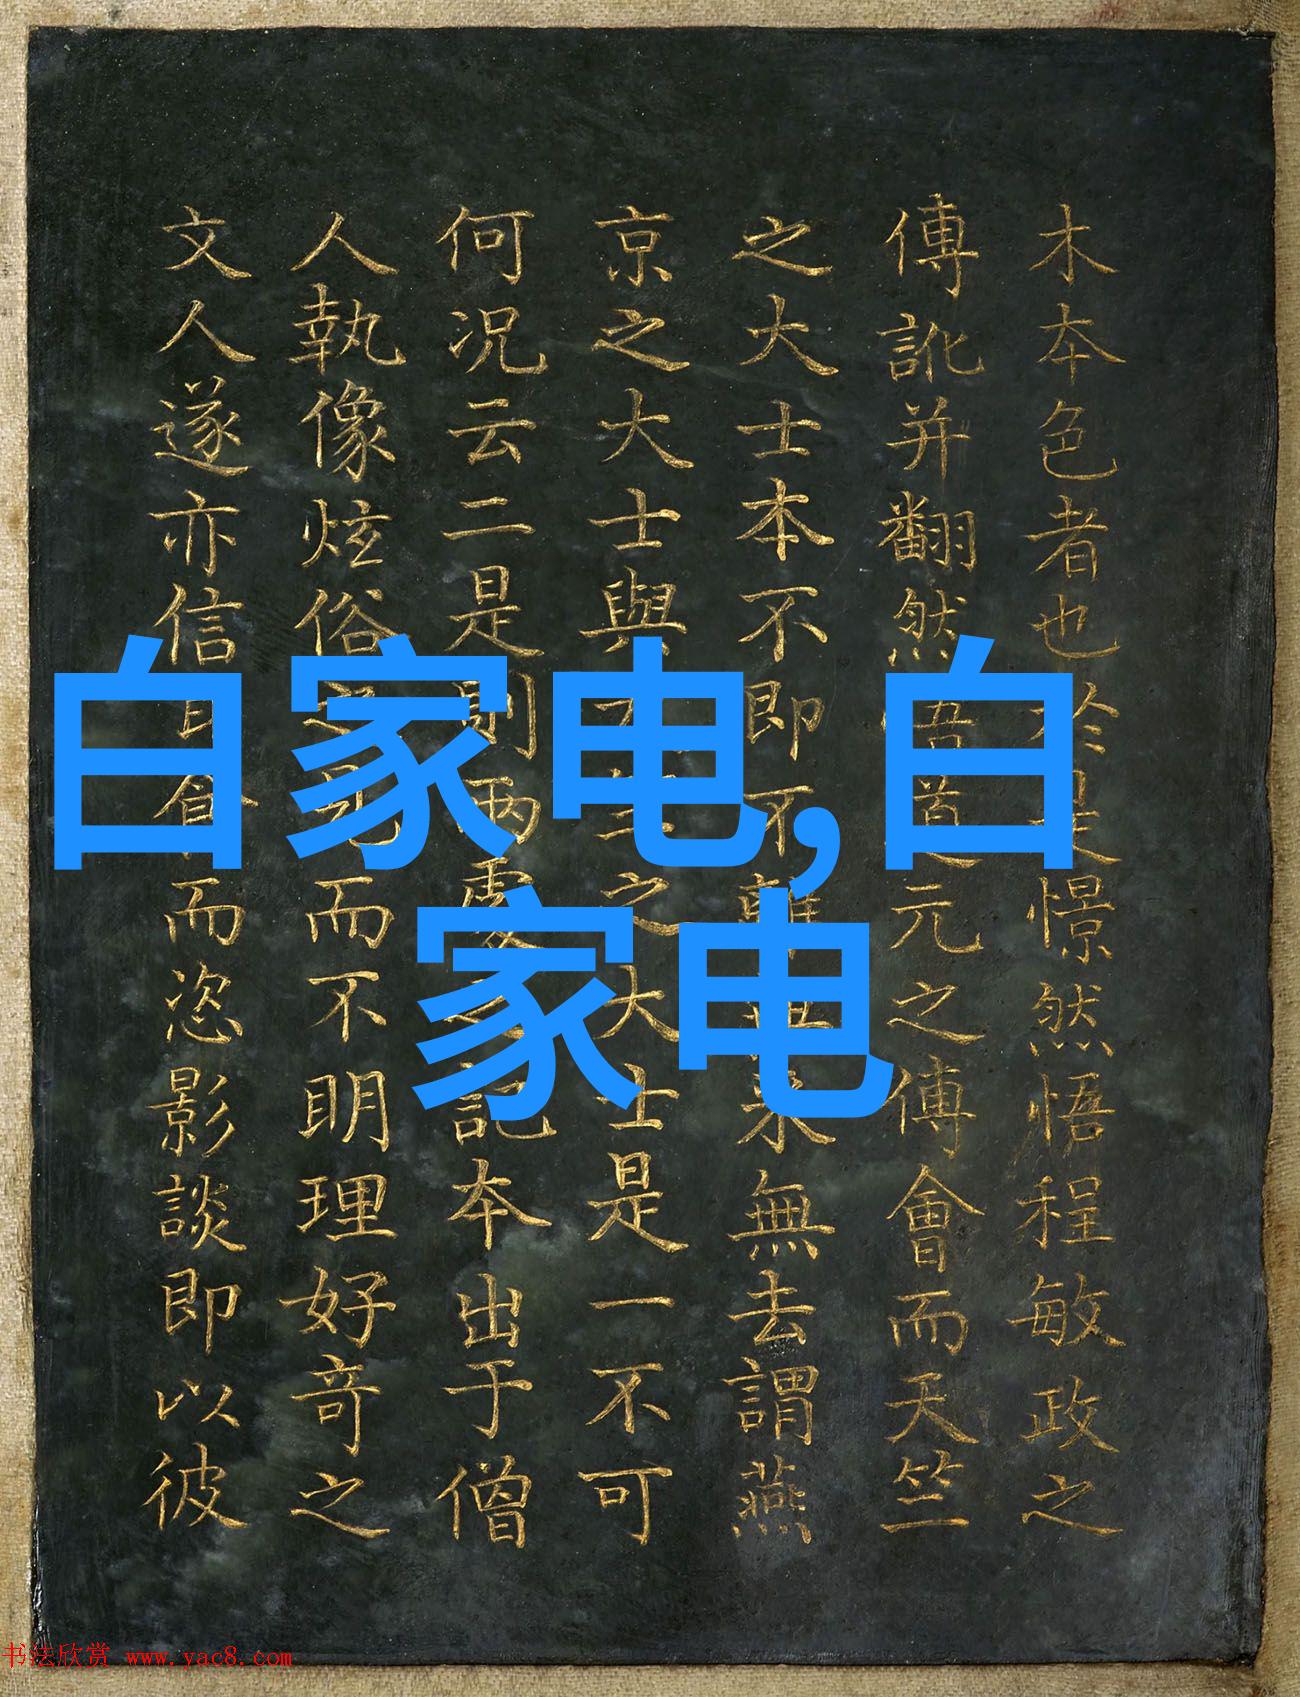 木本色者也於是憬然悟程敏政之
傳訛并翻然悟之元之傅會而天竺
之大士本不即不離無來無去謂燕
京之大士與天竺之大士是一不可
何況云二是則兩處之記本出于僧
人執像炫俗之見而不明理好奇之
文人遂亦信而恣影談即以彼
白家电,白
家电
书法欣赏 www.yac8.com